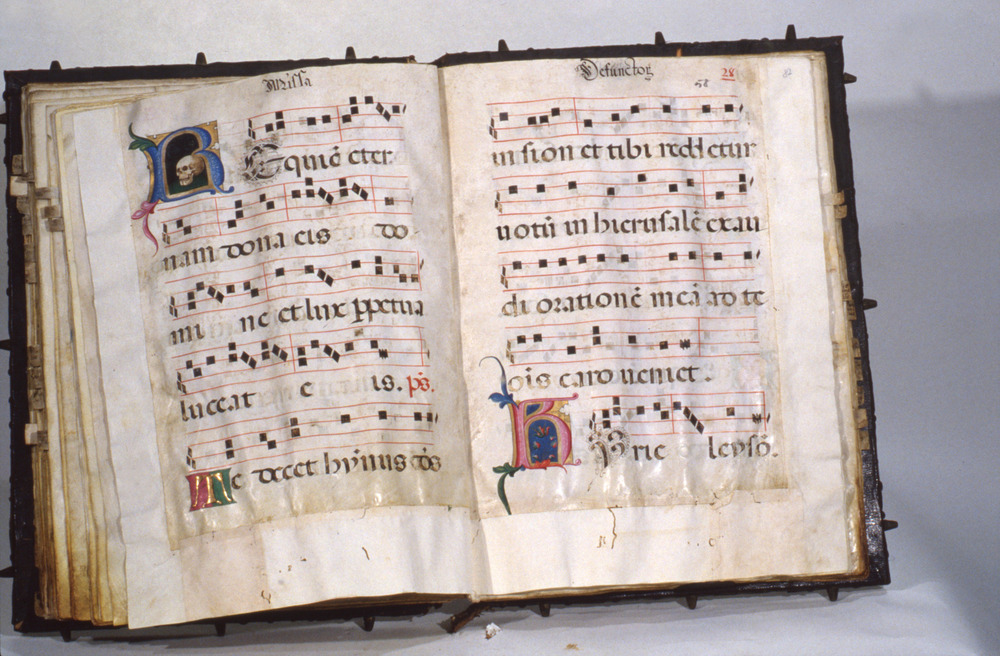 Missa
REquiē eter
nam dona eis do
mi ne et lux ppetua
luceat e is. ps.
Te decet hymnus ds
Defunctor
58 28
in sion et tibi reddetur
uotū in hierusalē exau
di orationē meā ad te
ois caro ueniet.
KYrie leysō.